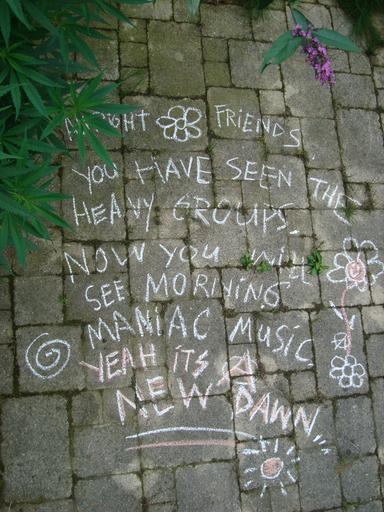 ALRIGHT FRIENDS
YOU HAVE SEEN THE
HEAVY GROUPS.
NOW YOU WILL
SEE MORNING
MANIAC MUSIC
YEAH ITS A
NEW DAWN